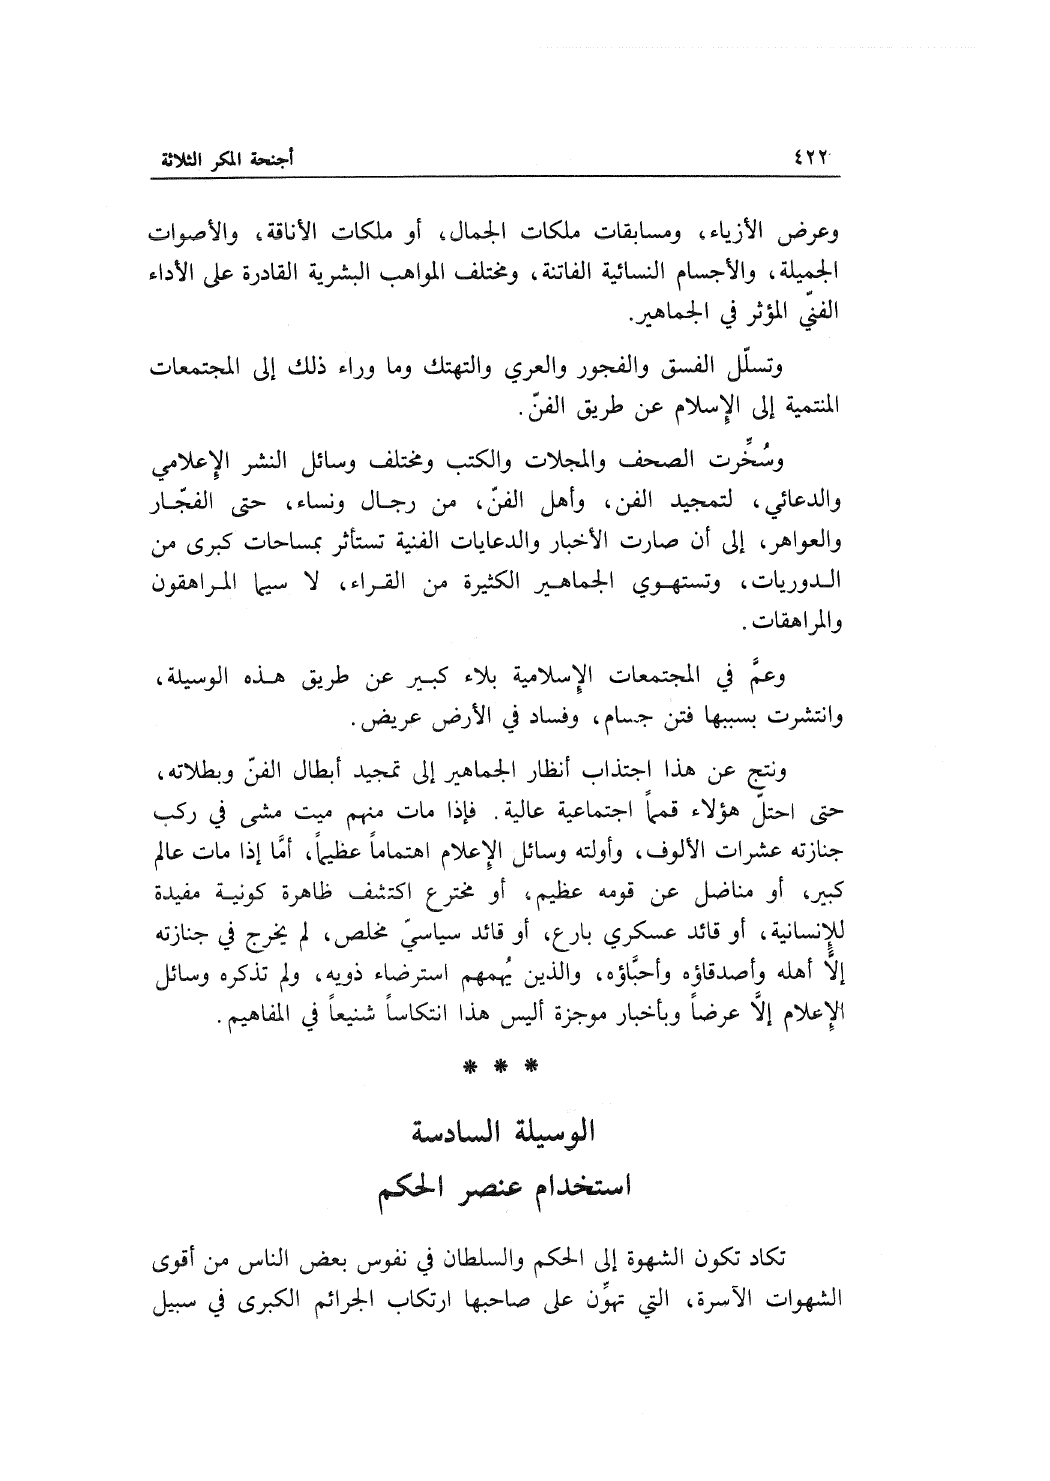 ٤٢٢ أجنحة المكر الثلاثة
وعرض الأزياء، ومسابقات ملكات الجمال، أو ملكات الأناقة، والأصوات
الجميلة، والأجسام النسائية الفاتنة، ومختلف المواهب البشرية القادرة على الأداء
الفنّي المؤثر في الجماهير.
وتسلّل الفسق والفجور والعري والتهتك وما وراء ذلك إلى المجتمعات
المنتمية إلى الإسلام عن طريق الفنّ.
وسُخِّرت الصحف والمجلات والكتب ومختلف وسائل النشر الإعلامي
والدعائي، لتمجيد الفن، وأهل الفنّ، من رجال ونساء، حتى الفجّار
والعواهر، إلى أن صارت الأخبار والدعايات الفنية تستأثر بمساحات كبرى من
الدوريات، وتستهوي الجماهير الكثيرة من القراء، لا سيما المراهقون
والمراهقات.
وعمَّ في المجتمعات الإسلامية بلاء كبير عن طريق هذه الوسيلة،
وانتشرت بسببها فتن جسام، وفساد في الأرض عريض.
ونتج عن هذا اجتذاب أنظار الجماهير إلى تمجيد أبطال الفنّ وبطلاته،
حتى احتلّ هؤلاء قمماً اجتماعية عالية. فإذا مات منهم ميت مشى في ركب
جنازته عشرات الألوف، وأولته وسائل الإعلام اهتماماً عظيماً، أمَّا إذا مات عالم
كبير، أو مناضل عن قومه عظيم، أو مخترع اكتشف ظاهرة كونية مفيدة
للإنسانية، أو قائد عسكري بارع، أو قائد سياسيّ مخلص، لم يخرج في جنازته
إلاَّ أهله وأصدقاؤه وأحبَّاؤه، والذين يُهمهم استرضاء ذويه، ولم تذكره وسائل
الإعلام إلاَّ عرضاً وبأخبار موجزة أليس هذا انتكاساً شنيعاً في المفاهيم.
* * *
الوسيلة السادسة
استخدام عنصر الحكم
تكاد تكون الشهوة إلى الحكم والسلطان في نفوس بعض الناس من أقوى
الشهوات الآسرة، التي تهوِّن على صاحبها ارتكاب الجرائم الكبرى في سبيل